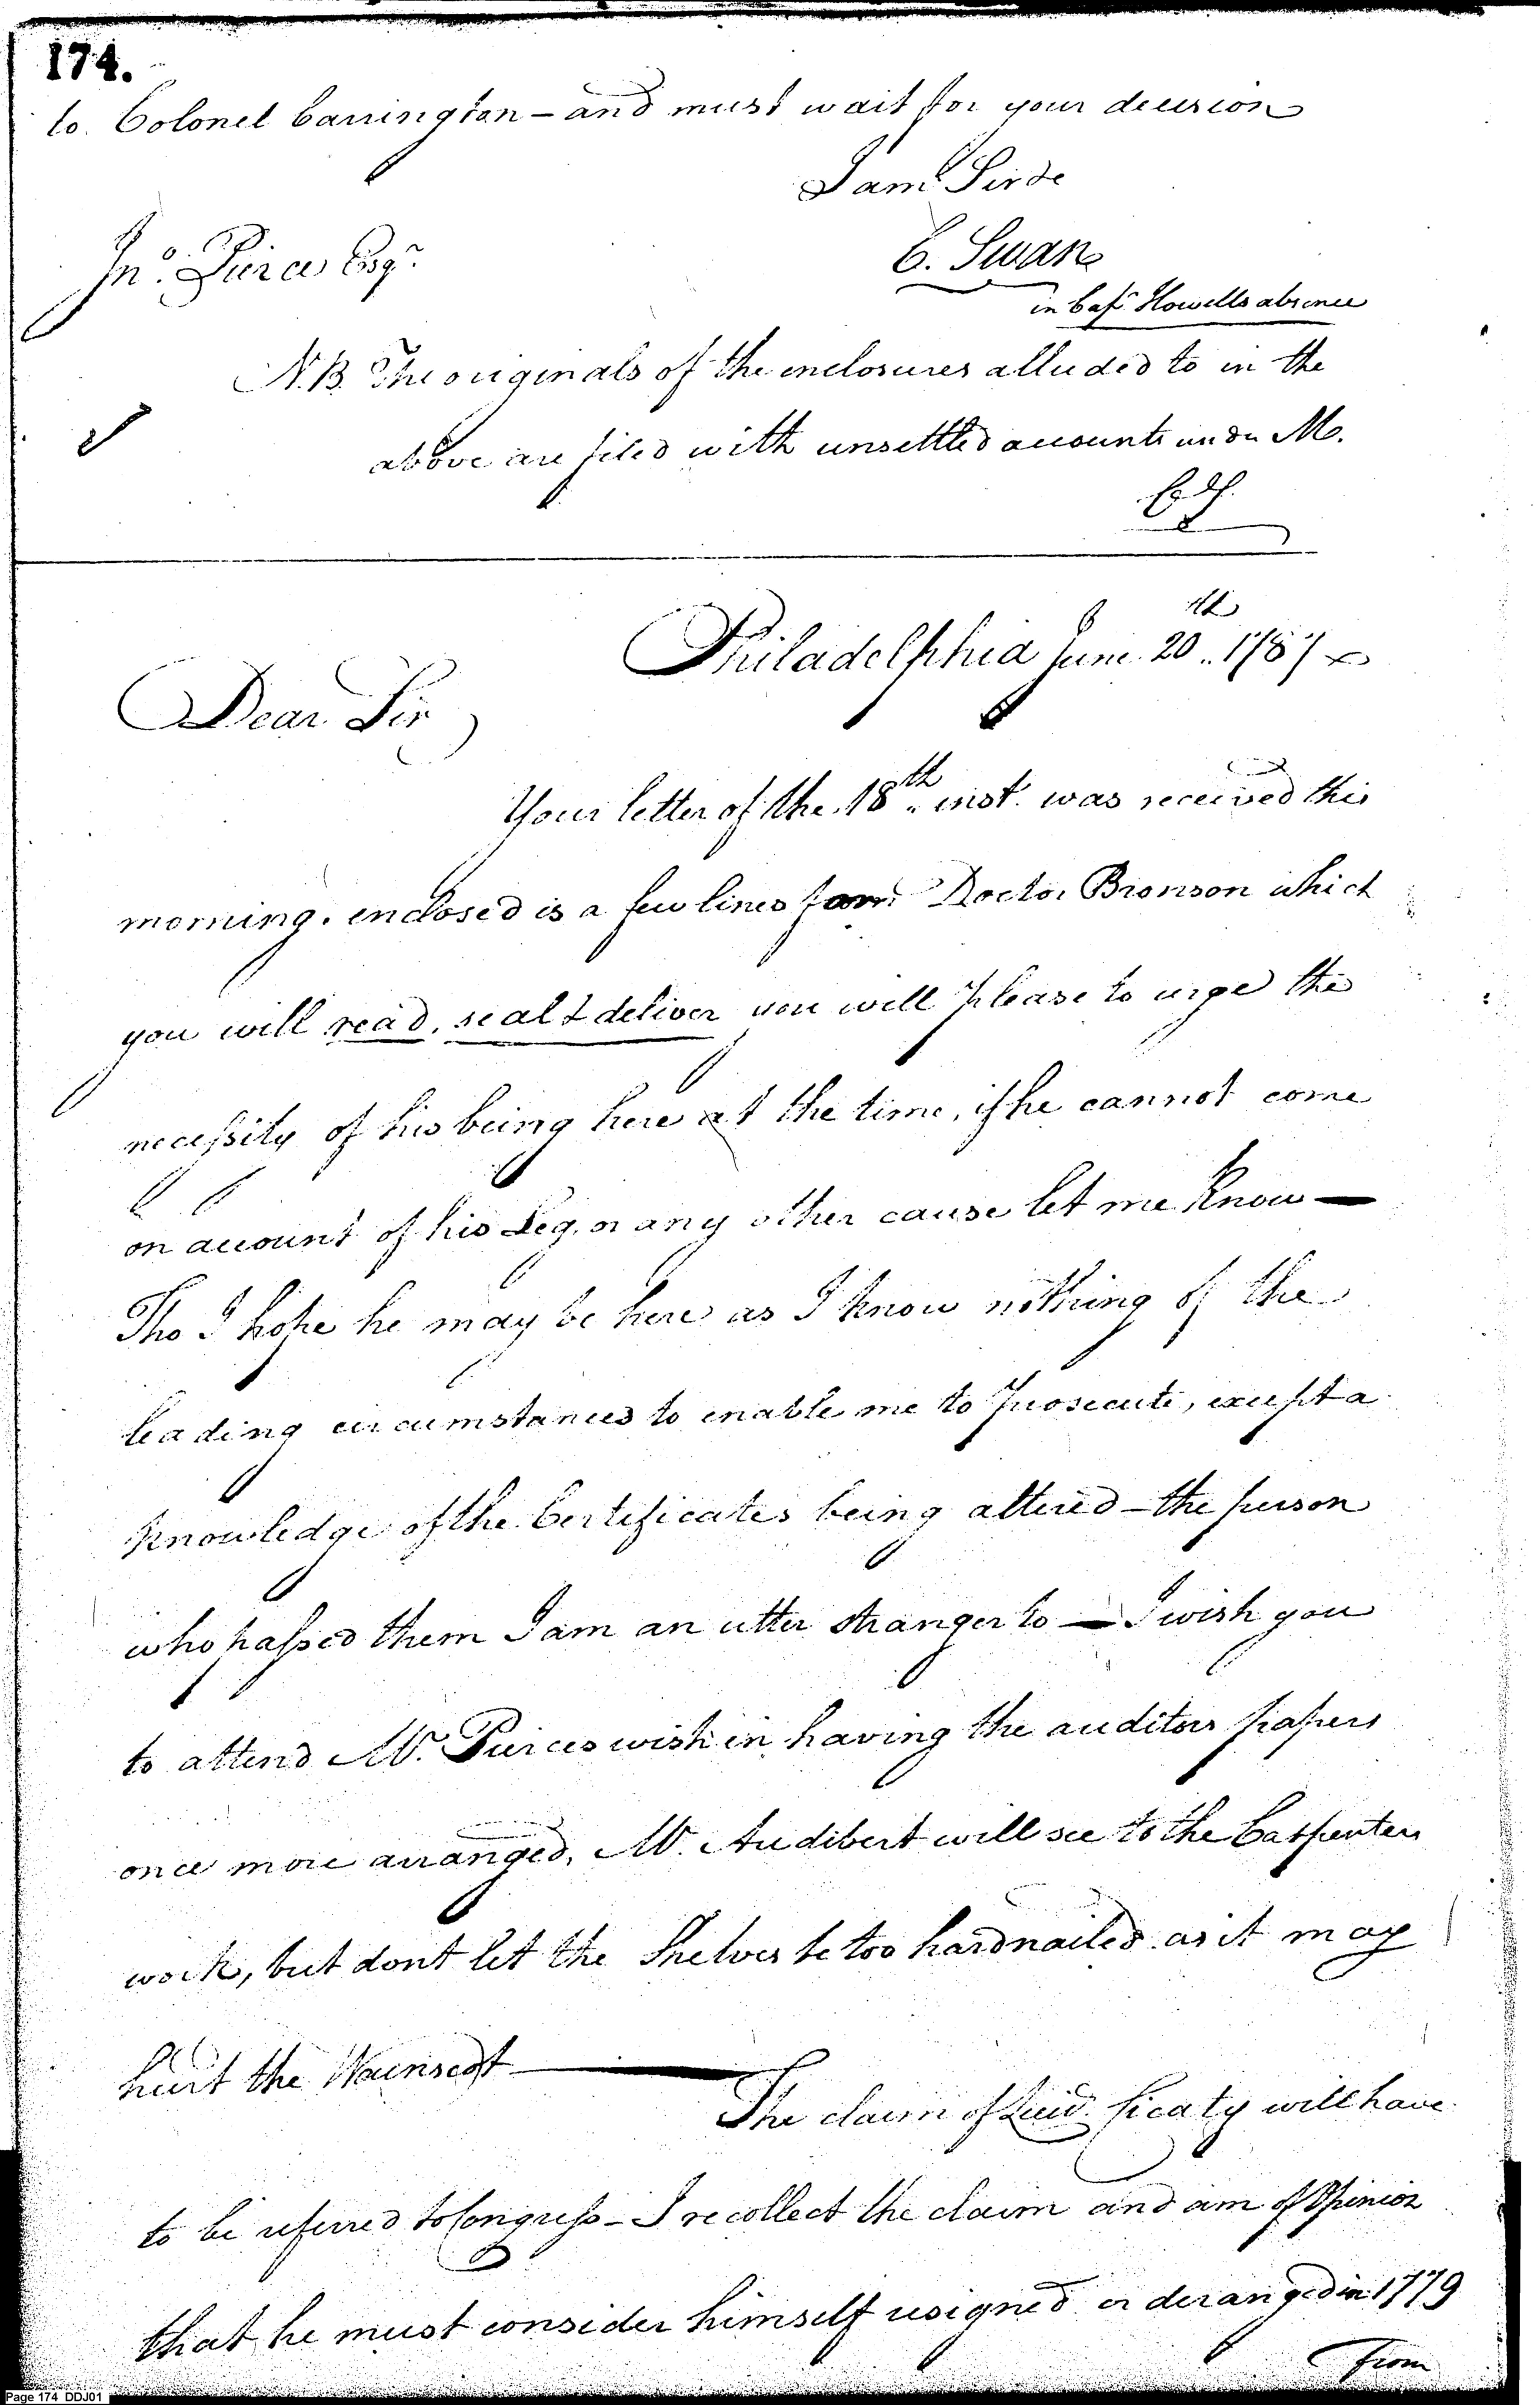 174.
to Colonel Carrington – and must wait for your decision
I am Sir &c
Jno. Pierce Esqr.
C. Swan
in Capt Howells absence
N.B. The originals of the enclosures alluded to in the
above are filed with unsettled accounts under M.
Philadelphia June 20th. 1787
Dear Sir
Your letter of the 18th. inst. was received this
morning. enclosed is a few lines for Doctor Bronson which
you will read, seal & deliver you will please to urge the
necessity of his being here at the time, if he cannot come
on account of his Leg, or any other cause let me know —
Tho I hope he may be here as I know nothing of the
leading circumstances to enable me to prosecute, except a
knowledge of the Certificates being altered – the person
who passed them I am an utter stranger to — I wish you
to attend Mr. Pierces wish in having the auditors papers
once more arranged, Mr. Audibert will see to the Carpenters
work, but dont let the Shelves be too hard nailed as it may
hurt the Wainscot —
The claim of will have
to be referred to Congress – I recollect the claim and am of Opinion
that he must consider himself resigned or deranged in 1779
From
Page 174 DDJ01